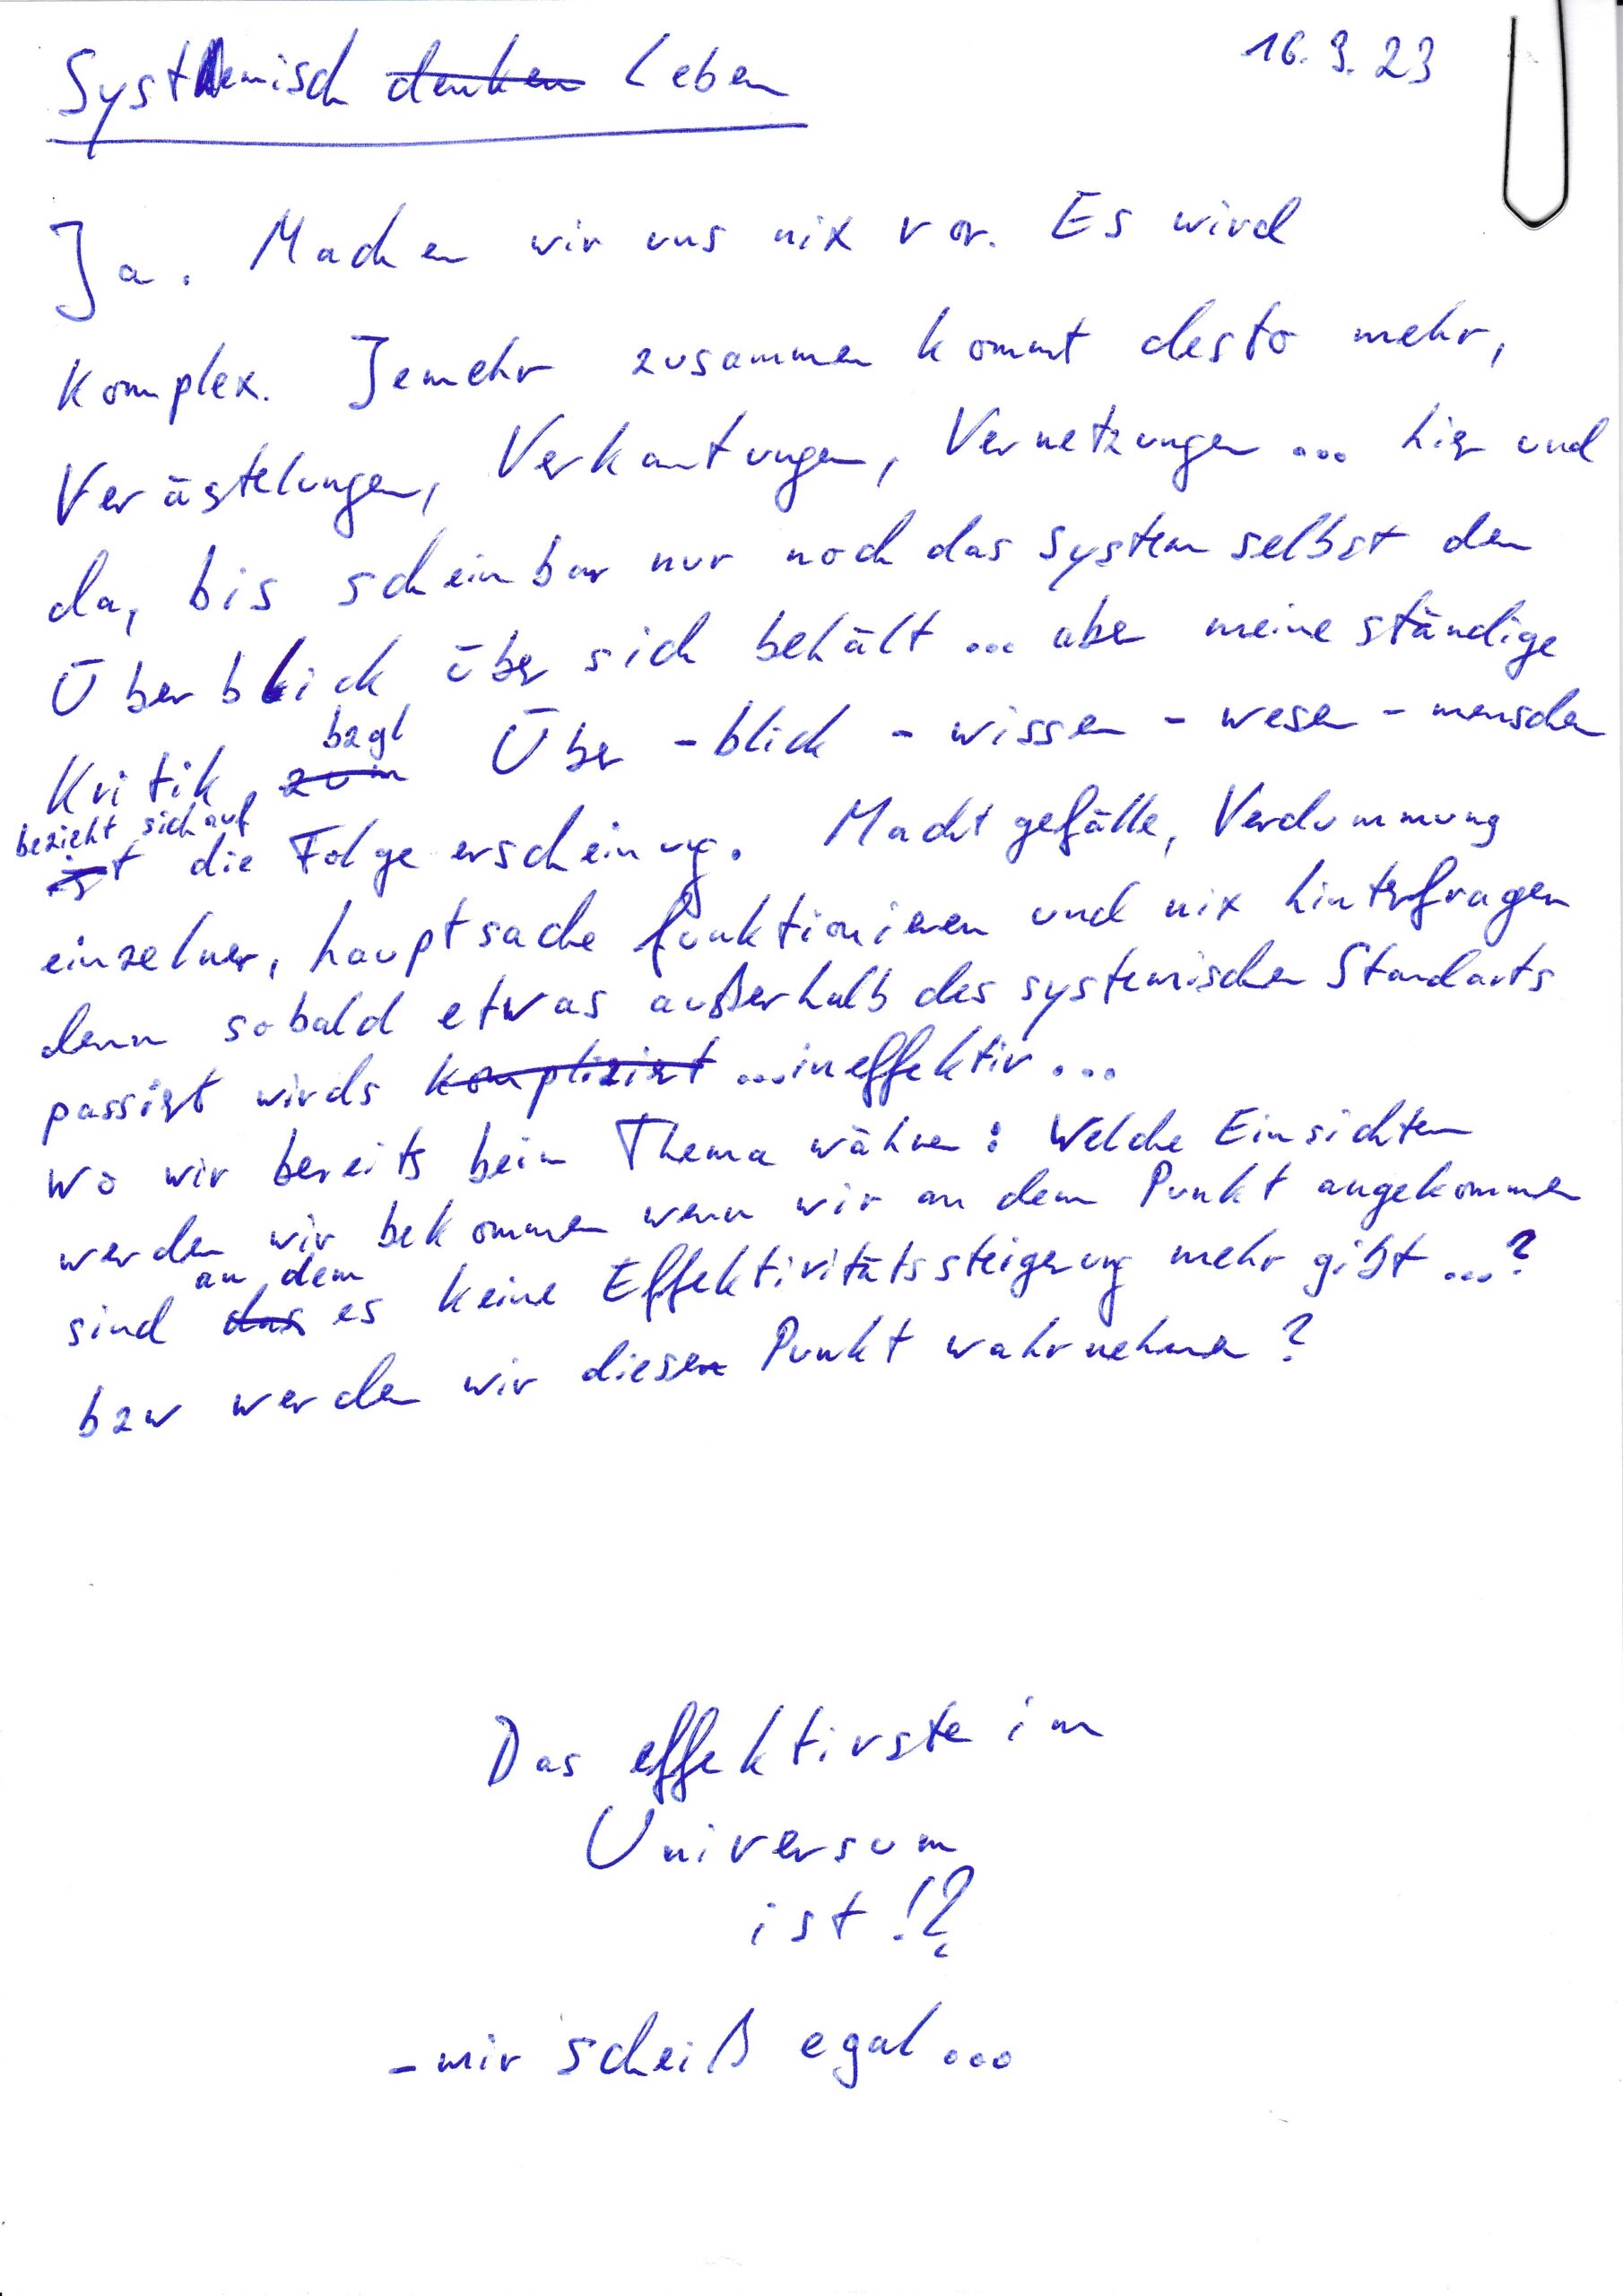 Systemisch ~~denken~~ Leben
16.3.23
Ja. Machen wir uns nix vor. Es wird
Komplex. Jemehr zusammen kommt desto mehr,
Verästelungen, Verkantungen, Vernetzungen ... hier und
da, bis scheinbar nur noch das System selbst den
Überblick über sich behält ... aber meine ständige
Kritik ~~zum~~ bzgl Über - blick - wissen - wesen - menschen
~~ist~~ bezieht sich auf die Folgeerscheinung. Machtgefälle, Verdummung
einzelner, hauptsache funktionieren und nix hinterfragen
denn sobald etwas außerhalb des systemischen Standarts
passiert wirds ~~kompliziert~~ ...ineffektiv...
wo wir bereits beim Thema währen: Welche Einsichten
werden wir bekommen wenn wir an dem Punkt angekommen
sind ~~das~~ an dem es keine Effektivitätssteigerung mehr gibt ...?
bzw werden wir diesen Punkt wahrnehmen?
Das effektivste im
Universum
ist !?
- mir scheiß egal ...